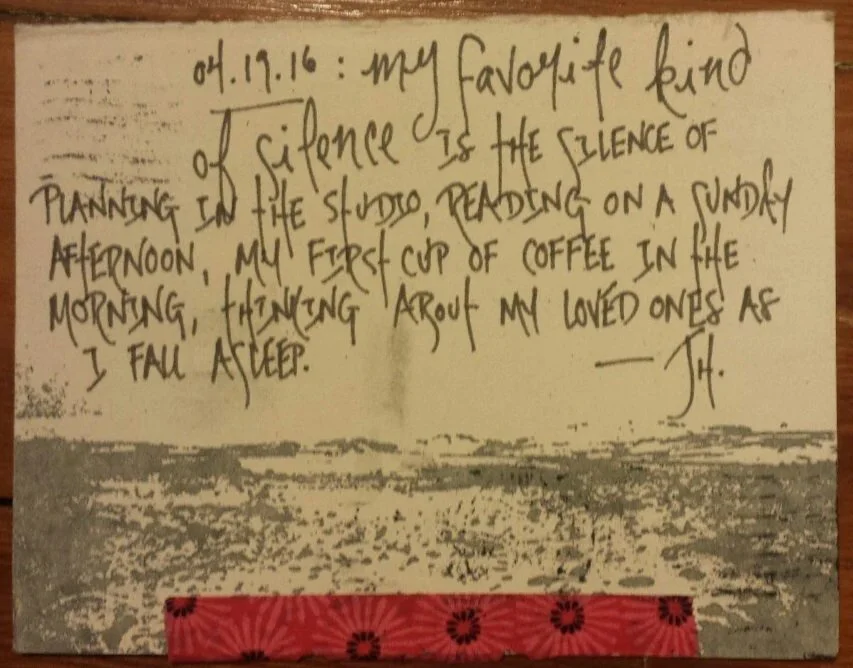 04.19.16 : my favorite kind
of silence IS tHE SILENCE OF
PLANNING IN tHE StUDIO, READING ON A SUNDAY
AFtERNOON, MY FIRSt CUP OF COFFEE IN tHE
MORNING, tHINKING ABOUt MY LOVED ONES AS
I FALL ASLEEP. — JH.